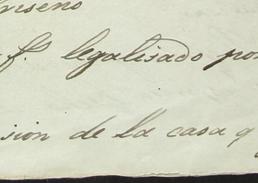 f. legalisado por
sion de la casa q